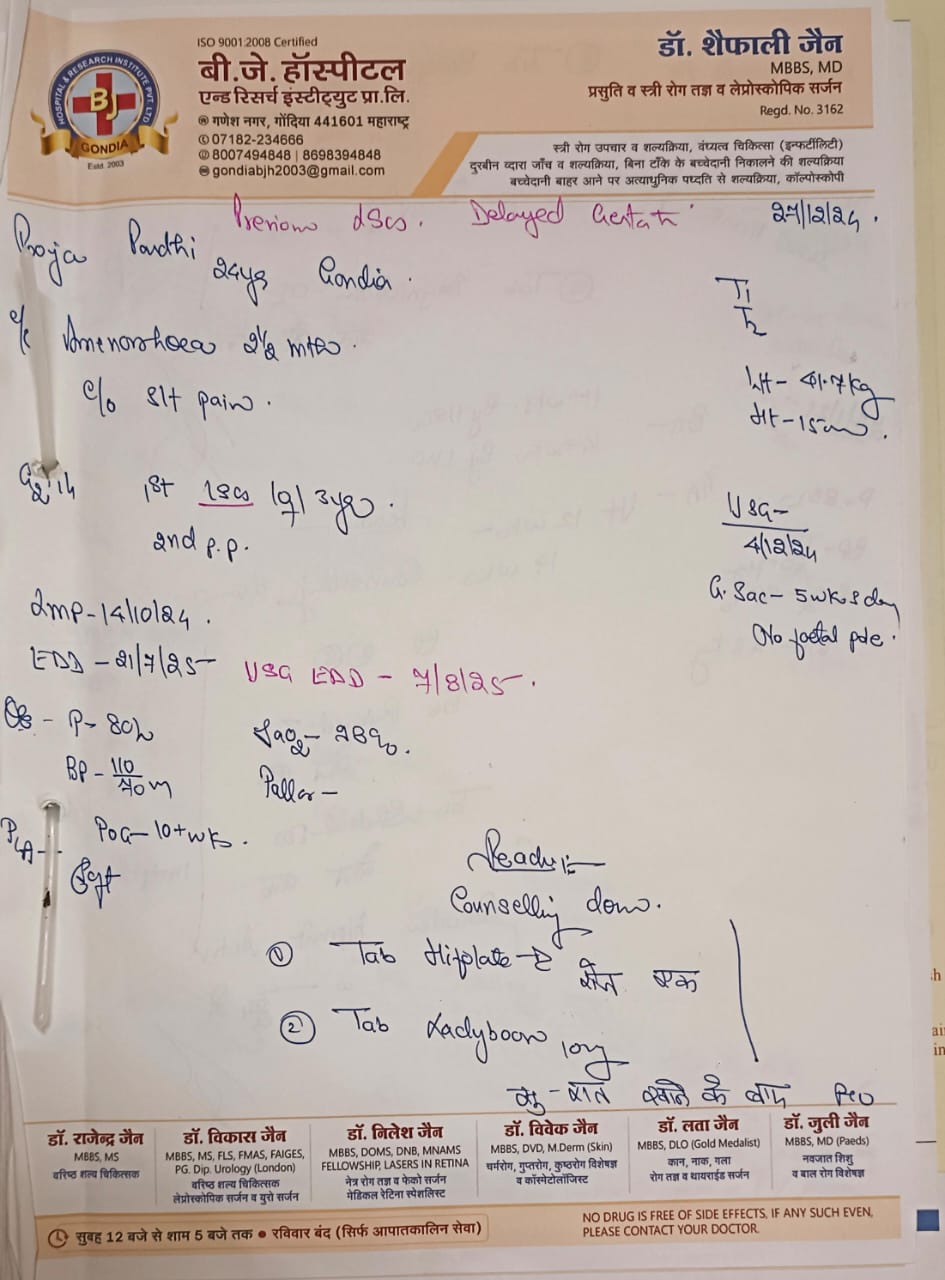 ISO 9001:2008 Certified
बी.जे. हॉस्पीटल
एन्ड रिसर्च इंस्टीट्युट प्रा.लि.
गणेश नगर, गोंदिया 441601 महाराष्ट्र
07182-234666
8007494848 | 8698394848
gondiabjh2003@gmail.com
HOSPITAL & RESEARCH INSTITUTE PVT. LTD
BJ
GONDIA
Estd. 2003
डॉ. शैफाली जैन
MBBS, MD
प्रसुति व स्त्री रोग तज्ञ व लेप्रोस्कोपिक सर्जन
Regd. No. 3162
स्त्री रोग उपचार व शल्यक्रिया, वंध्यत्व चिकित्सा (इन्फर्टीलिटी)
दुरबीन व्दारा जाँच व शल्यक्रिया, बिना टाँके के बच्चेदानी निकालने की शल्यक्रिया
बच्चेदानी बाहर आने पर अत्याधुनिक पध्दति से शल्यक्रिया, कॉल्पोस्कोपी
Delayed 27/12/24.
Pardhi
24yr Gondia.
T1
T2
Amenorrhoea 2½ mths.
c/o slt pain.
Wt- 41.7kg
Ht-
1st LSCS 3yr.
2nd p.p.
USG-
4/12/24
G. Sac- 5wks day
No foetal pole.
LMP-14/10/24.
EDD-21/7/25 USG EDD- 7/8/25.
P- 80
BP- 110/70
Pallor-
P/A- POG-10+wks.
Soft
Counselling done.
① Tab
रोज एक
② Tab
रात खाने के बाद
डॉ. राजेन्द्र जैन
MBBS, MS
वरिष्ठ शल्य चिकित्सक
डॉ. विकास जैन
MBBS, MS, FLS, FMAS, FAIGES,
PG. Dip. Urology (London)
वरिष्ठ शल्य चिकित्सक
लेप्रोस्कोपिक सर्जन व युरो सर्जन
डॉ. निलेश जैन
MBBS, DOMS, DNB, MNAMS
FELLOWSHIP, LASERS IN RETINA
नेत्र रोग तज्ञ व फेको सर्जन
मेडिकल रेटिना स्पेशलिस्ट
डॉ. विवेक जैन
MBBS, DVD, M.Derm (Skin)
चर्मरोग, गुप्तरोग, कुष्ठरोग विशेषज्ञ
व कॉस्मेटोलॉजिस्ट
डॉ. लवा जैन
MBBS, DLO (Gold Medalist)
कान, नाक, गला
रोग तज्ञ व थायराईड सर्जन
डॉ. जुली जैन
MBBS, MD (Paeds)
नवजात शिशु
व बाल रोग विशेषज्ञ
सुबह 12 बजे से शाम 5 बजे तक • रविवार बंद (सिर्फ आपातकालिन सेवा)
NO DRUG IS FREE OF SIDE EFFECTS, IF ANY SUCH EVEN,
PLEASE CONTACT YOUR DOCTOR.